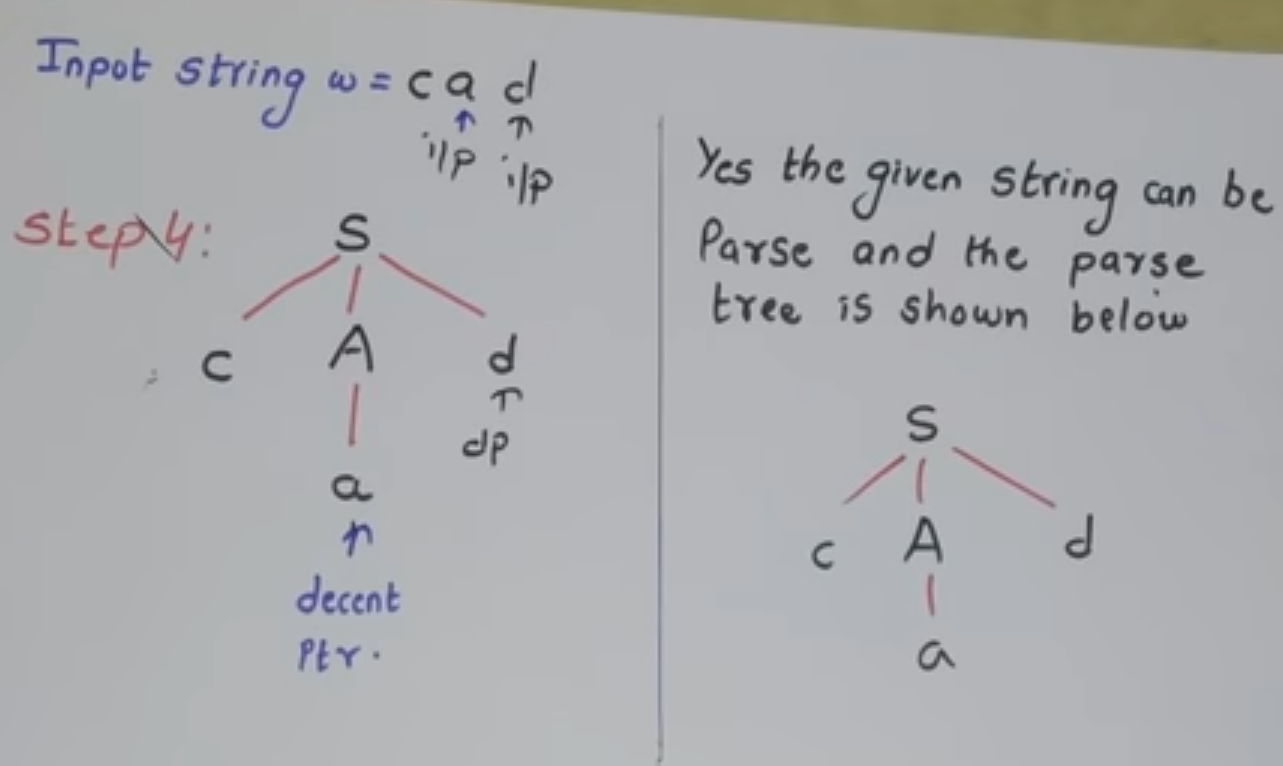 Inpot string w = c a d
↑ ↑
i/p i/p
Step 4:
S
c A d
↑
dp
a
↑
decent
Ptr.
Yes the given string can be
Parse and the parse
tree is shown below
S
c A d
a